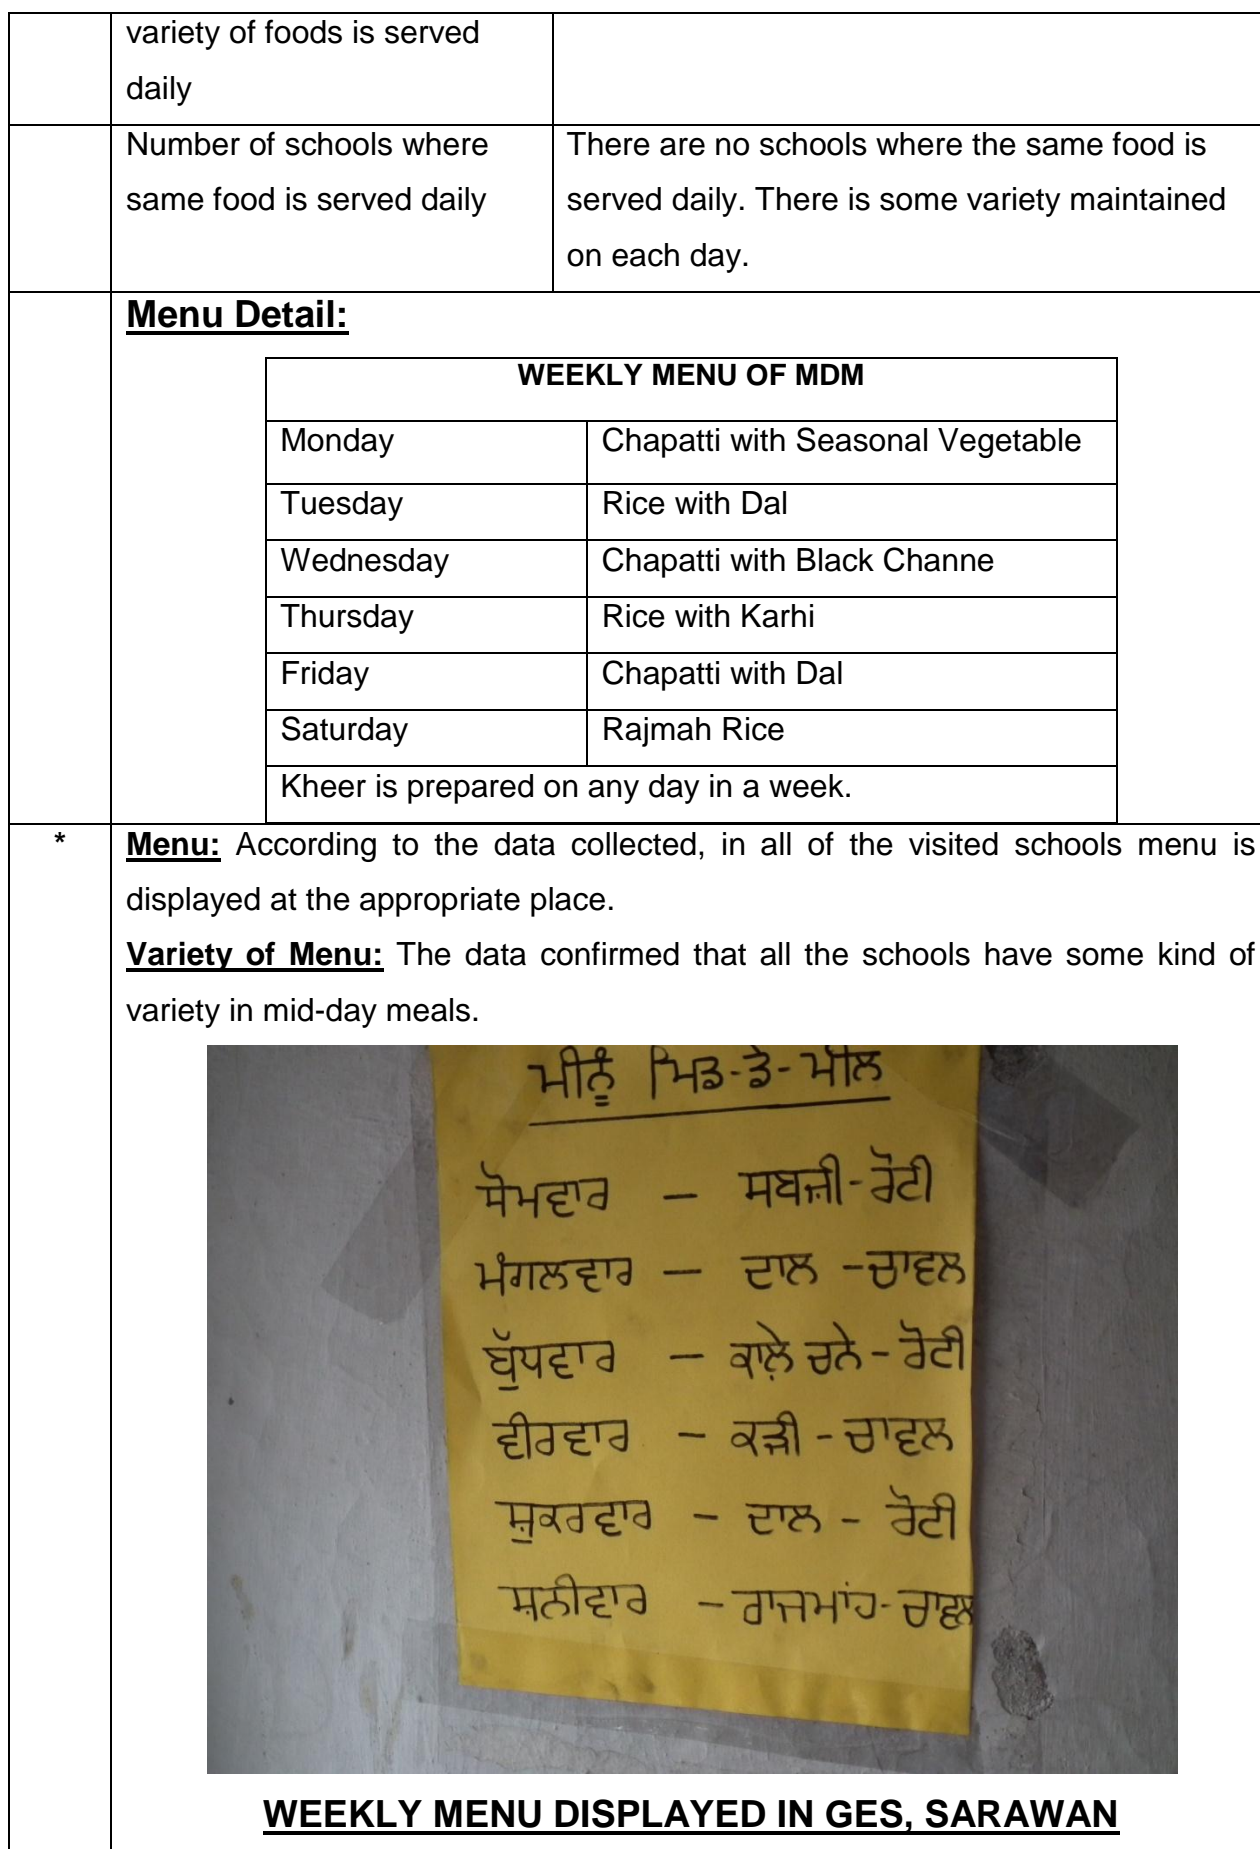 variety of foods is served
daily
Number of schools where
same food is served daily
There are no schools where the same food is
served daily. There is some variety maintained
on each day.
Menu Detail:
WEEKLY MENU OF MDM
Monday Chapatti with Seasonal Vegetable
Tuesday Rice with Dal
Wednesday Chapatti with Black Channe
Thursday Rice with Karhi
Friday Chapatti with Dal
Saturday Rajmah Rice
Kheer is prepared on any day in a week.
* Menu: According to the data collected, in all of the visited schools menu is
displayed at the appropriate place.
Variety of Menu: The data confirmed that all the schools have some kind of
variety in mid-day meals.
ਮੀਨੂੰ ਮਿਡ-ਡੇ-ਮੀਲ
ਸੋਮਵਾਰ – ਸਬਜ਼ੀ-ਰੋਟੀ
ਮੰਗਲਵਾਰ – ਦਾਲ -ਚਾਵਲ
ਬੁੱਧਵਾਰ – ਕਾਲ਼ੇ ਚਨੇ - ਰੋਟੀ
ਵੀਰਵਾਰ – ਕੜੀ - ਚਾਵਲ
ਸ਼ੁਕਰਵਾਰ – ਦਾਲ - ਰੋਟੀ
ਸ਼ਨੀਵਾਰ – ਰਾਜਮਾਂਹ- ਚਾਵਲ
WEEKLY MENU DISPLAYED IN GES, SARAWAN